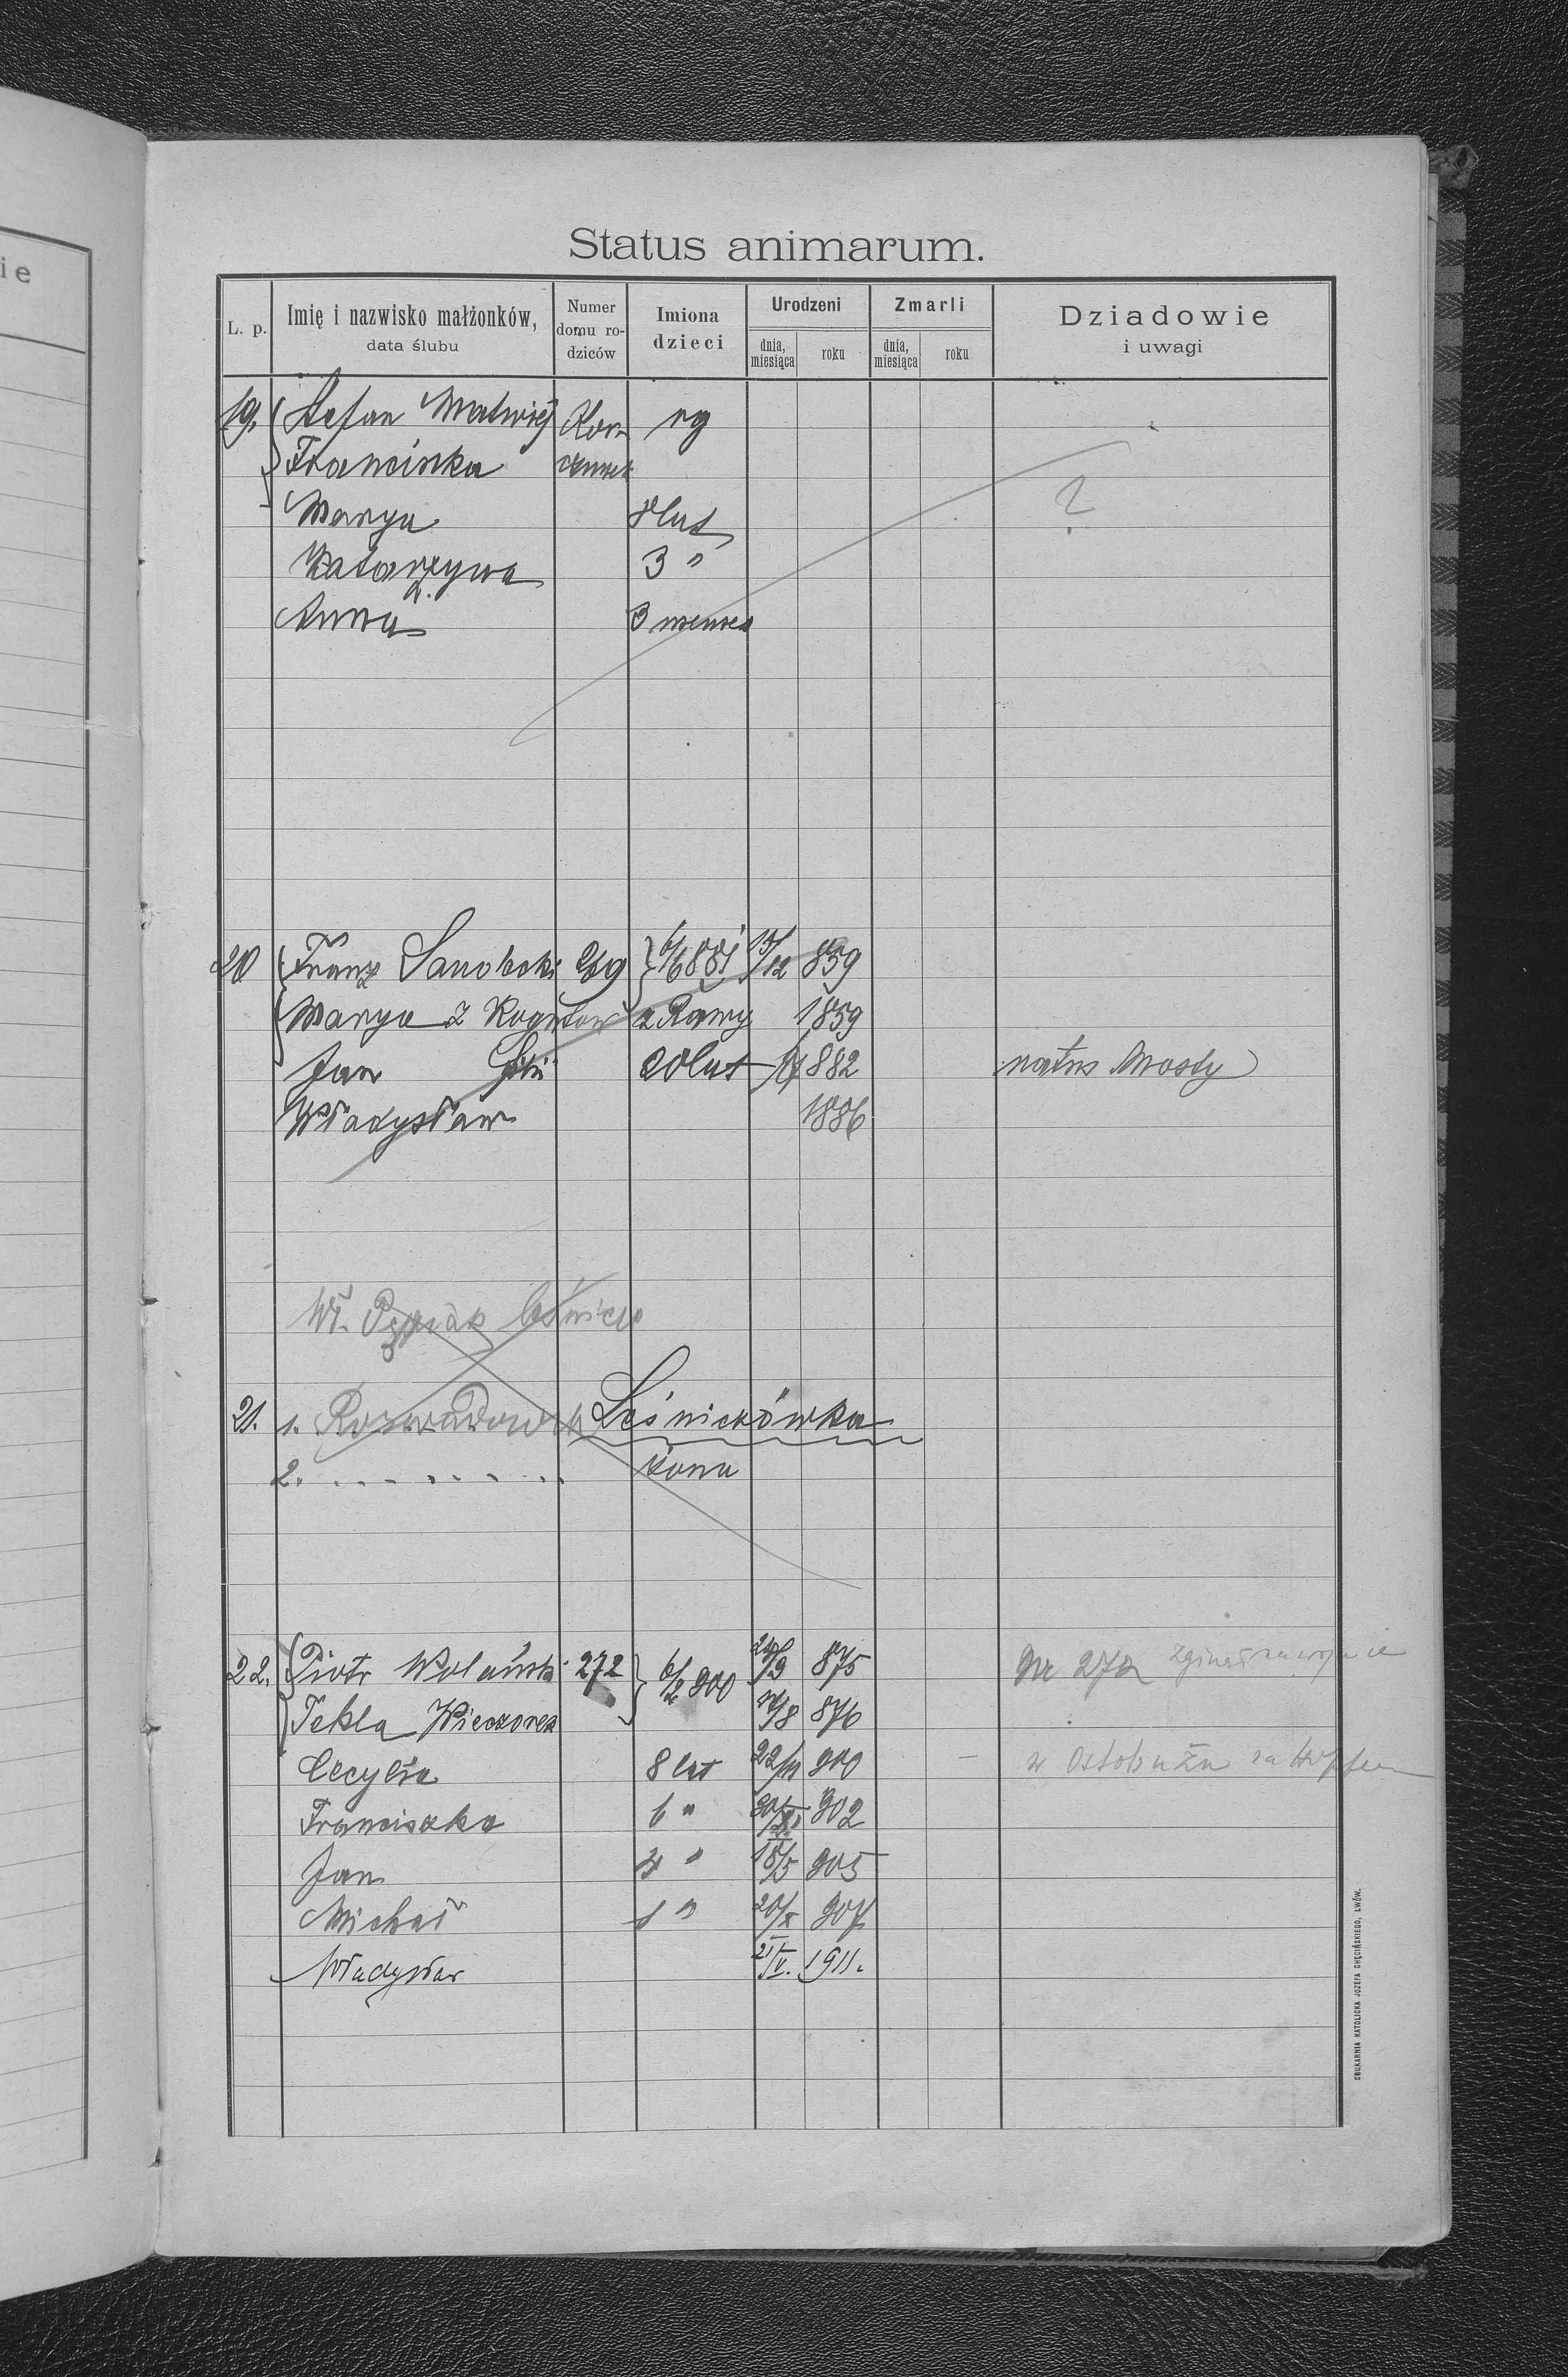 ie
Status animarum.
L. p. Imię i nazwisko małżonków, data ślubu Numer domu rodziców Imiona dzieci Urodzeni dnia, miesiąca roku Zmarli dnia, miesiąca roku Dziadowie i uwagi
19. Stefan Matwiej rg
Franciszka
Marya 8 lat ?
Katarzyna 3 "
Anna 3 menses
20 Franz Sanobcki 269 6/6 881 13/12 859
Marya z z Rawy 1859
Jan 20 lat 882 natus Mosty
Władysław 1886
Wł. leśniczy
21. 1. Rozwadowski Leśniczówka
2. . . . . . . . . żona
22. Piotr Wolański 272 6/2 900 29/9 875 Nr 272 zginął na wojnie
Tekla Wieczorek 876
Cecylia 8 lat 22/11 900 — w Ostobużu za
Franciszka 6 " 902
Jan 4 " 18/5 905
Michał 1 " 20/X 907
Władysław 21/V. 1911.
DRUKARNIA KATOLICKA JOZEFA CHĘCIŃSKIEGO, LWÓW.